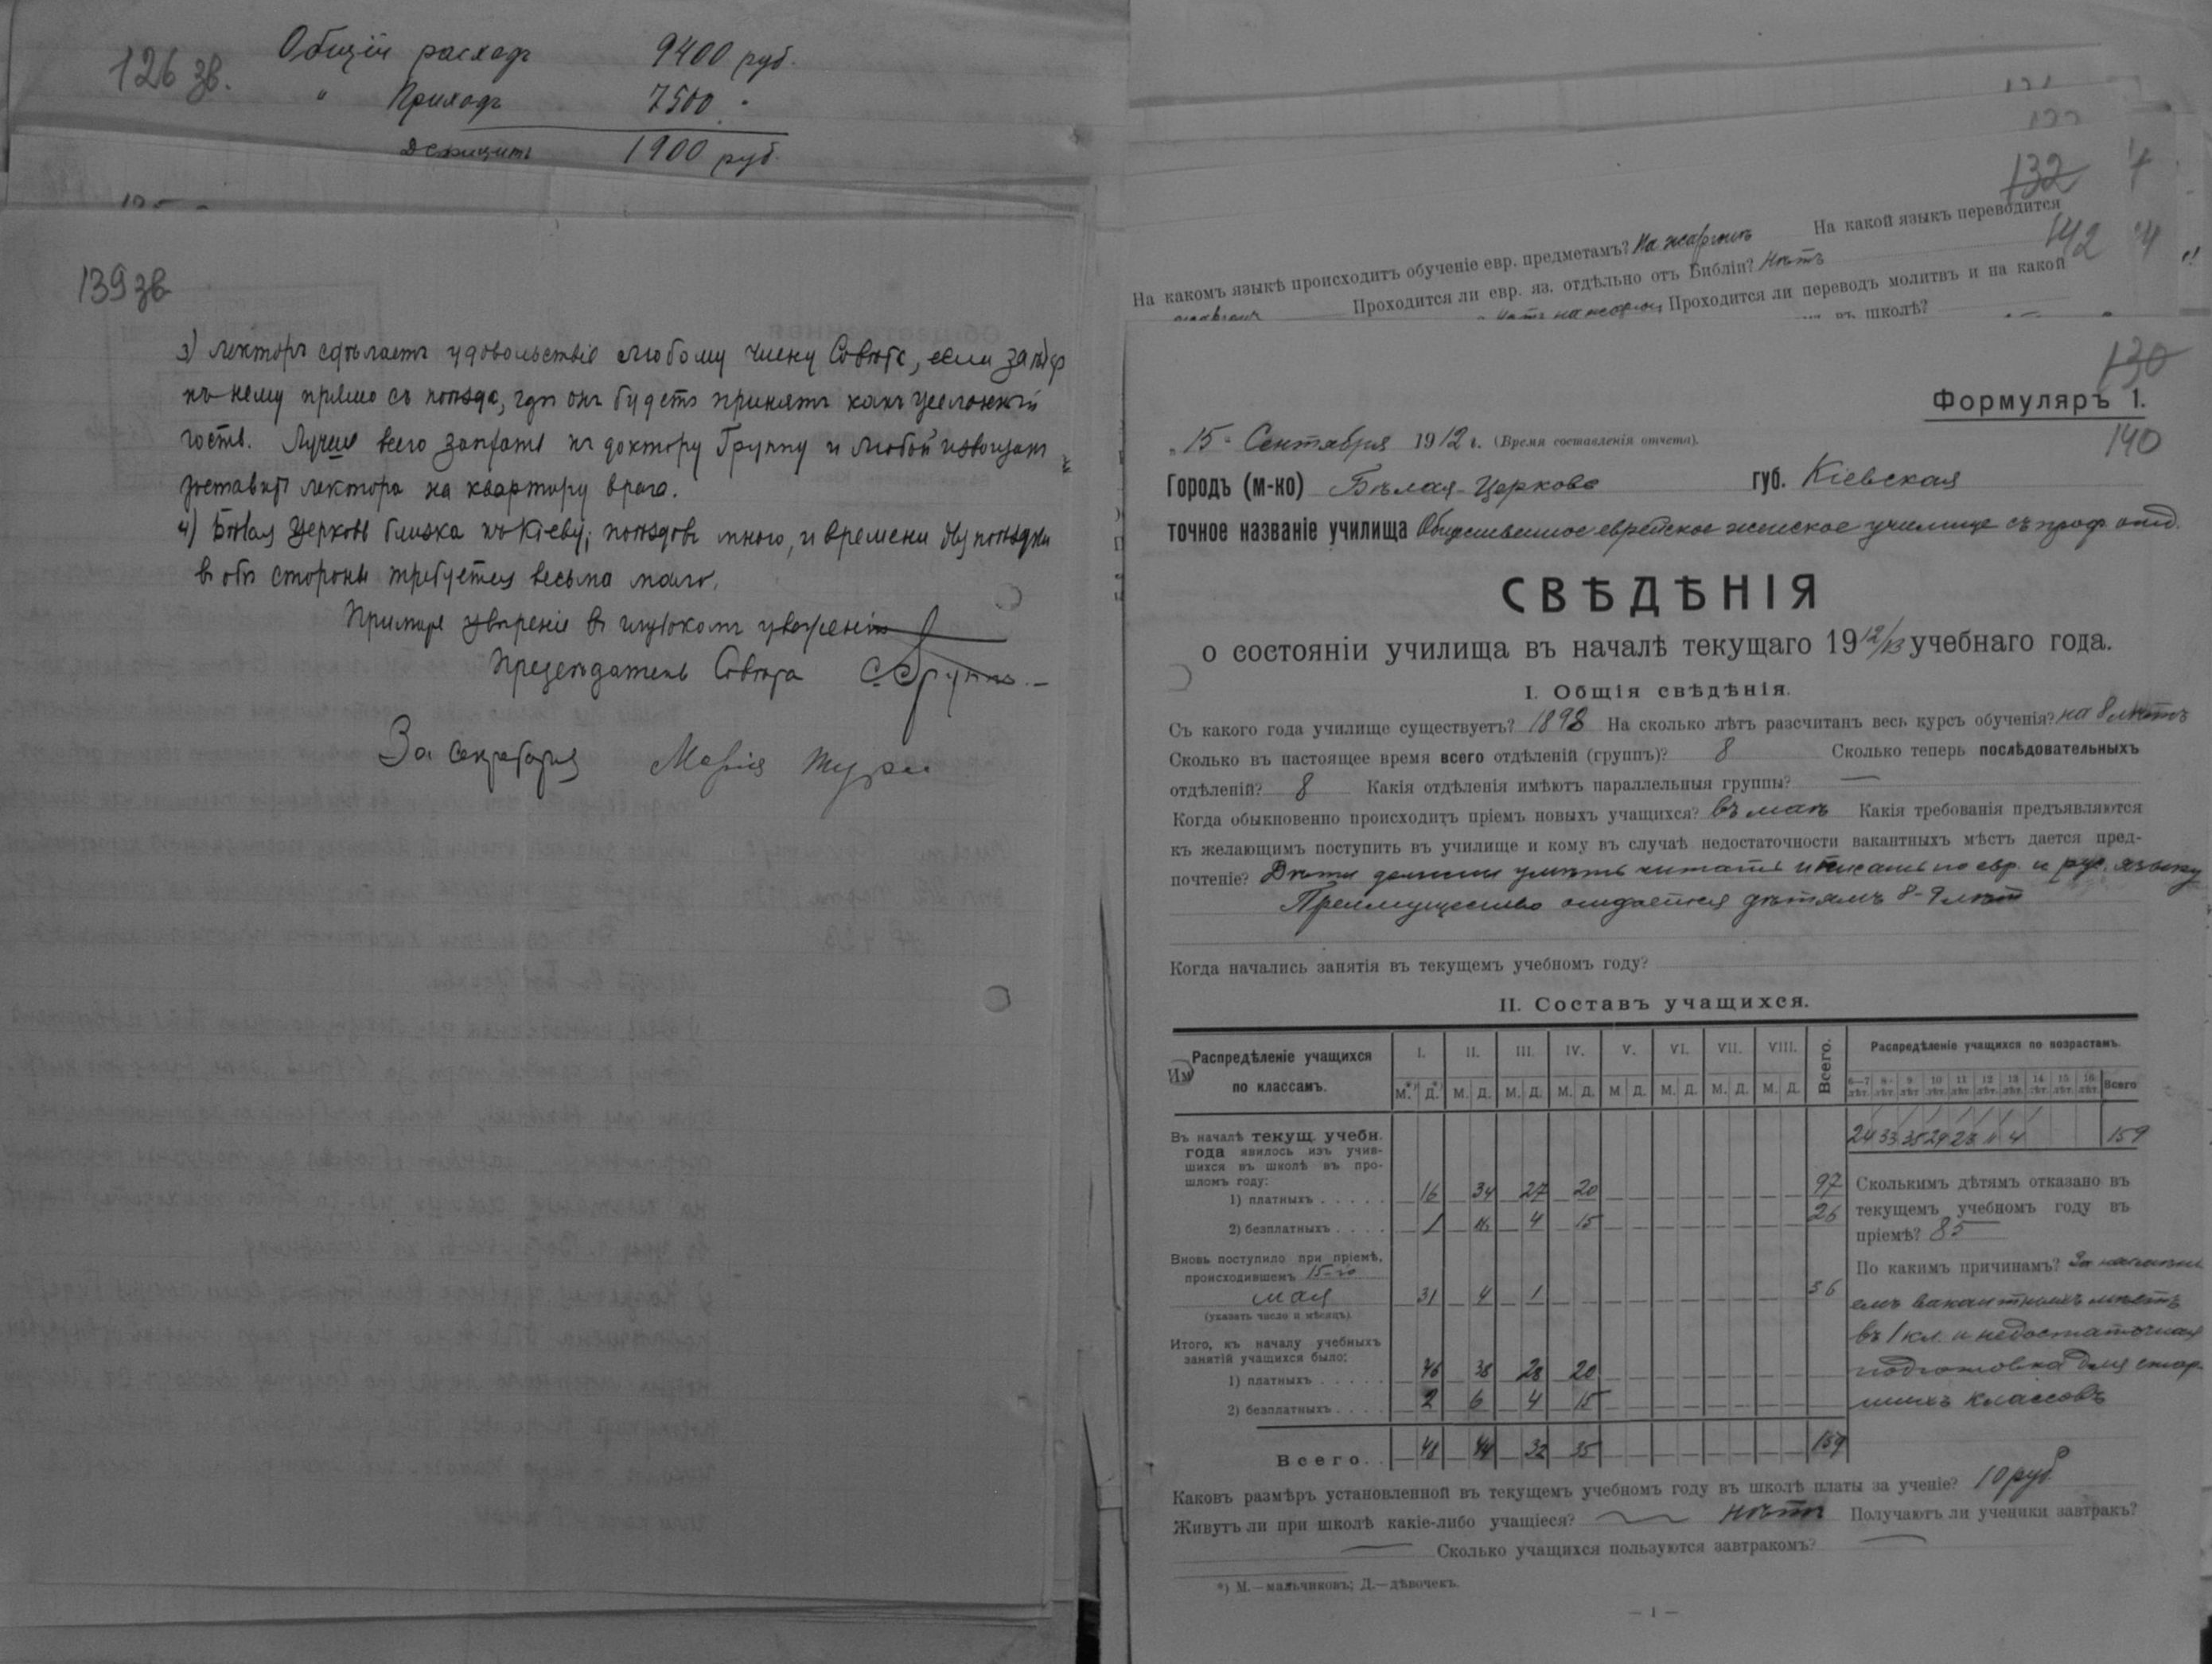 126 зв.
Общій расходъ 9400 руб.
" Приходъ 7500 "
Дефицитъ 1900 руб.
139 зв
3) Лекторъ сдѣлаетъ удовольствіе любому члену Совѣта, если
къ нему прямо съ поѣзда, гдѣ онъ будетъ принятъ какъ желанный
гость. Лучше всего заѣхать къ доктору Группу и любой извощикъ
доставитъ лектора на квартиру врача.
4) Бѣлая Церковь близка къ Кіеву; поѣздовъ много, и времени для поѣздки
въ обѣ стороны требуется весьма мало.
Примите увѣреніе въ глубокомъ уваженіи
Предсѣдатель Совѣта С. Группъ
За секретаря Марія
132
142
На какомъ языкѣ происходитъ обученіе евр. предметамъ? На жаргонѣ На какой языкъ переводится
Проходится ли евр. яз. отдѣльно отъ Библіи? Нѣтъ
Проходится ли переводъ молитвъ и на какой
въ школѣ?
130
Формуляръ 1.
140
„15" Сентября 1912 г. (Время составленія отчета).
Городъ (м-ко) Бѣлая-Церковь губ. Кіевская
точное названіе училища Общественное еврейское женское училище съ проф. отд.
СВѢДѢНІЯ
о состояніи училища въ началѣ текущаго 1912/13 учебнаго года.
I. Общія свѣдѣнія.
Съ какого года училище существуетъ? 1898 На сколько лѣтъ разсчитанъ весь курсъ обученія? на 8 лѣтъ
Сколько въ настоящее время всего отдѣленій (группъ)? 8 Сколько теперь послѣдовательныхъ
отдѣленій? 8 Какія отдѣленія имѣютъ параллельныя группы? —
Когда обыкновенно происходитъ пріемъ новыхъ учащихся? въ маѣ Какія требованія предъявляются
къ желающимъ поступить въ училище и кому въ случаѣ недостаточности вакантныхъ мѣстъ дается пред-
почтеніе? Дѣти должны умѣть читать и писать по евр. и рус. языку
Преимущество отдается дѣтямъ 8-9 лѣт
Когда начались занятія въ текущемъ учебномъ году?
II. Составъ учащихся.
Распредѣленіе учащихся по классамъ. I. II. III. IV. V. VI. VII. VIII. Всего.
М.*) Д.*) М. Д. М. Д. М. Д. М. Д. М. Д. М. Д. М. Д.
Въ началѣ текущ. учебн.
года явилось изъ учив-
шихся въ школѣ въ про-
шломъ году:
1) платныхъ . . . . . — 16 — 34 — 27 — 20 — — — — — — — — 97
2) безплатныхъ . . . . — 1 — — 4 — 15 — — — — — — — — 26
Вновь поступило при пріемѣ,
происходившемъ 15-го
мая — 31 — 4 — 1 — — — — — — — — — — 36
(указать число и мѣсяцъ).
Итого, къ началу учебныхъ
занятій учащихся было:
1) платныхъ . . . . . — 46 — 38 — 28 — 20 — — — — — — — —
2) безплатныхъ . . . . — 2 — 6 — 4 — 15 — — — — — — — —
Всего. . — 48 — 44 — 32 — 35 — — — — — — — — 159
Распредѣленіе учащихся по возрастамъ.
6—7 лѣт. 8 лѣт. 9 лѣт. 10 лѣт. 11 лѣт. 12 лѣт. 13 лѣт. 14 лѣт. 15 лѣт. 16 лѣт. Всего
24 33 35 29 23 11 4 159
Сколькимъ дѣтямъ отказано въ
текущемъ учебномъ году въ
пріемѣ? 85
По какимъ причинамъ? За
вакантныхъ мѣстъ
въ 1 кл. и недостаточная
подготовка для стар-
шихъ классовъ
Каковъ размѣръ установленной въ текущемъ учебномъ году въ школѣ платы за ученіе? 10 руб
Живутъ ли при школѣ какіе-либо учащіеся? нѣтъ Получаютъ ли ученики завтракъ?
— Сколько учащихся пользуются завтракомъ? —
*) М.—мальчиковъ; Д.—дѣвочекъ.
— 1 —